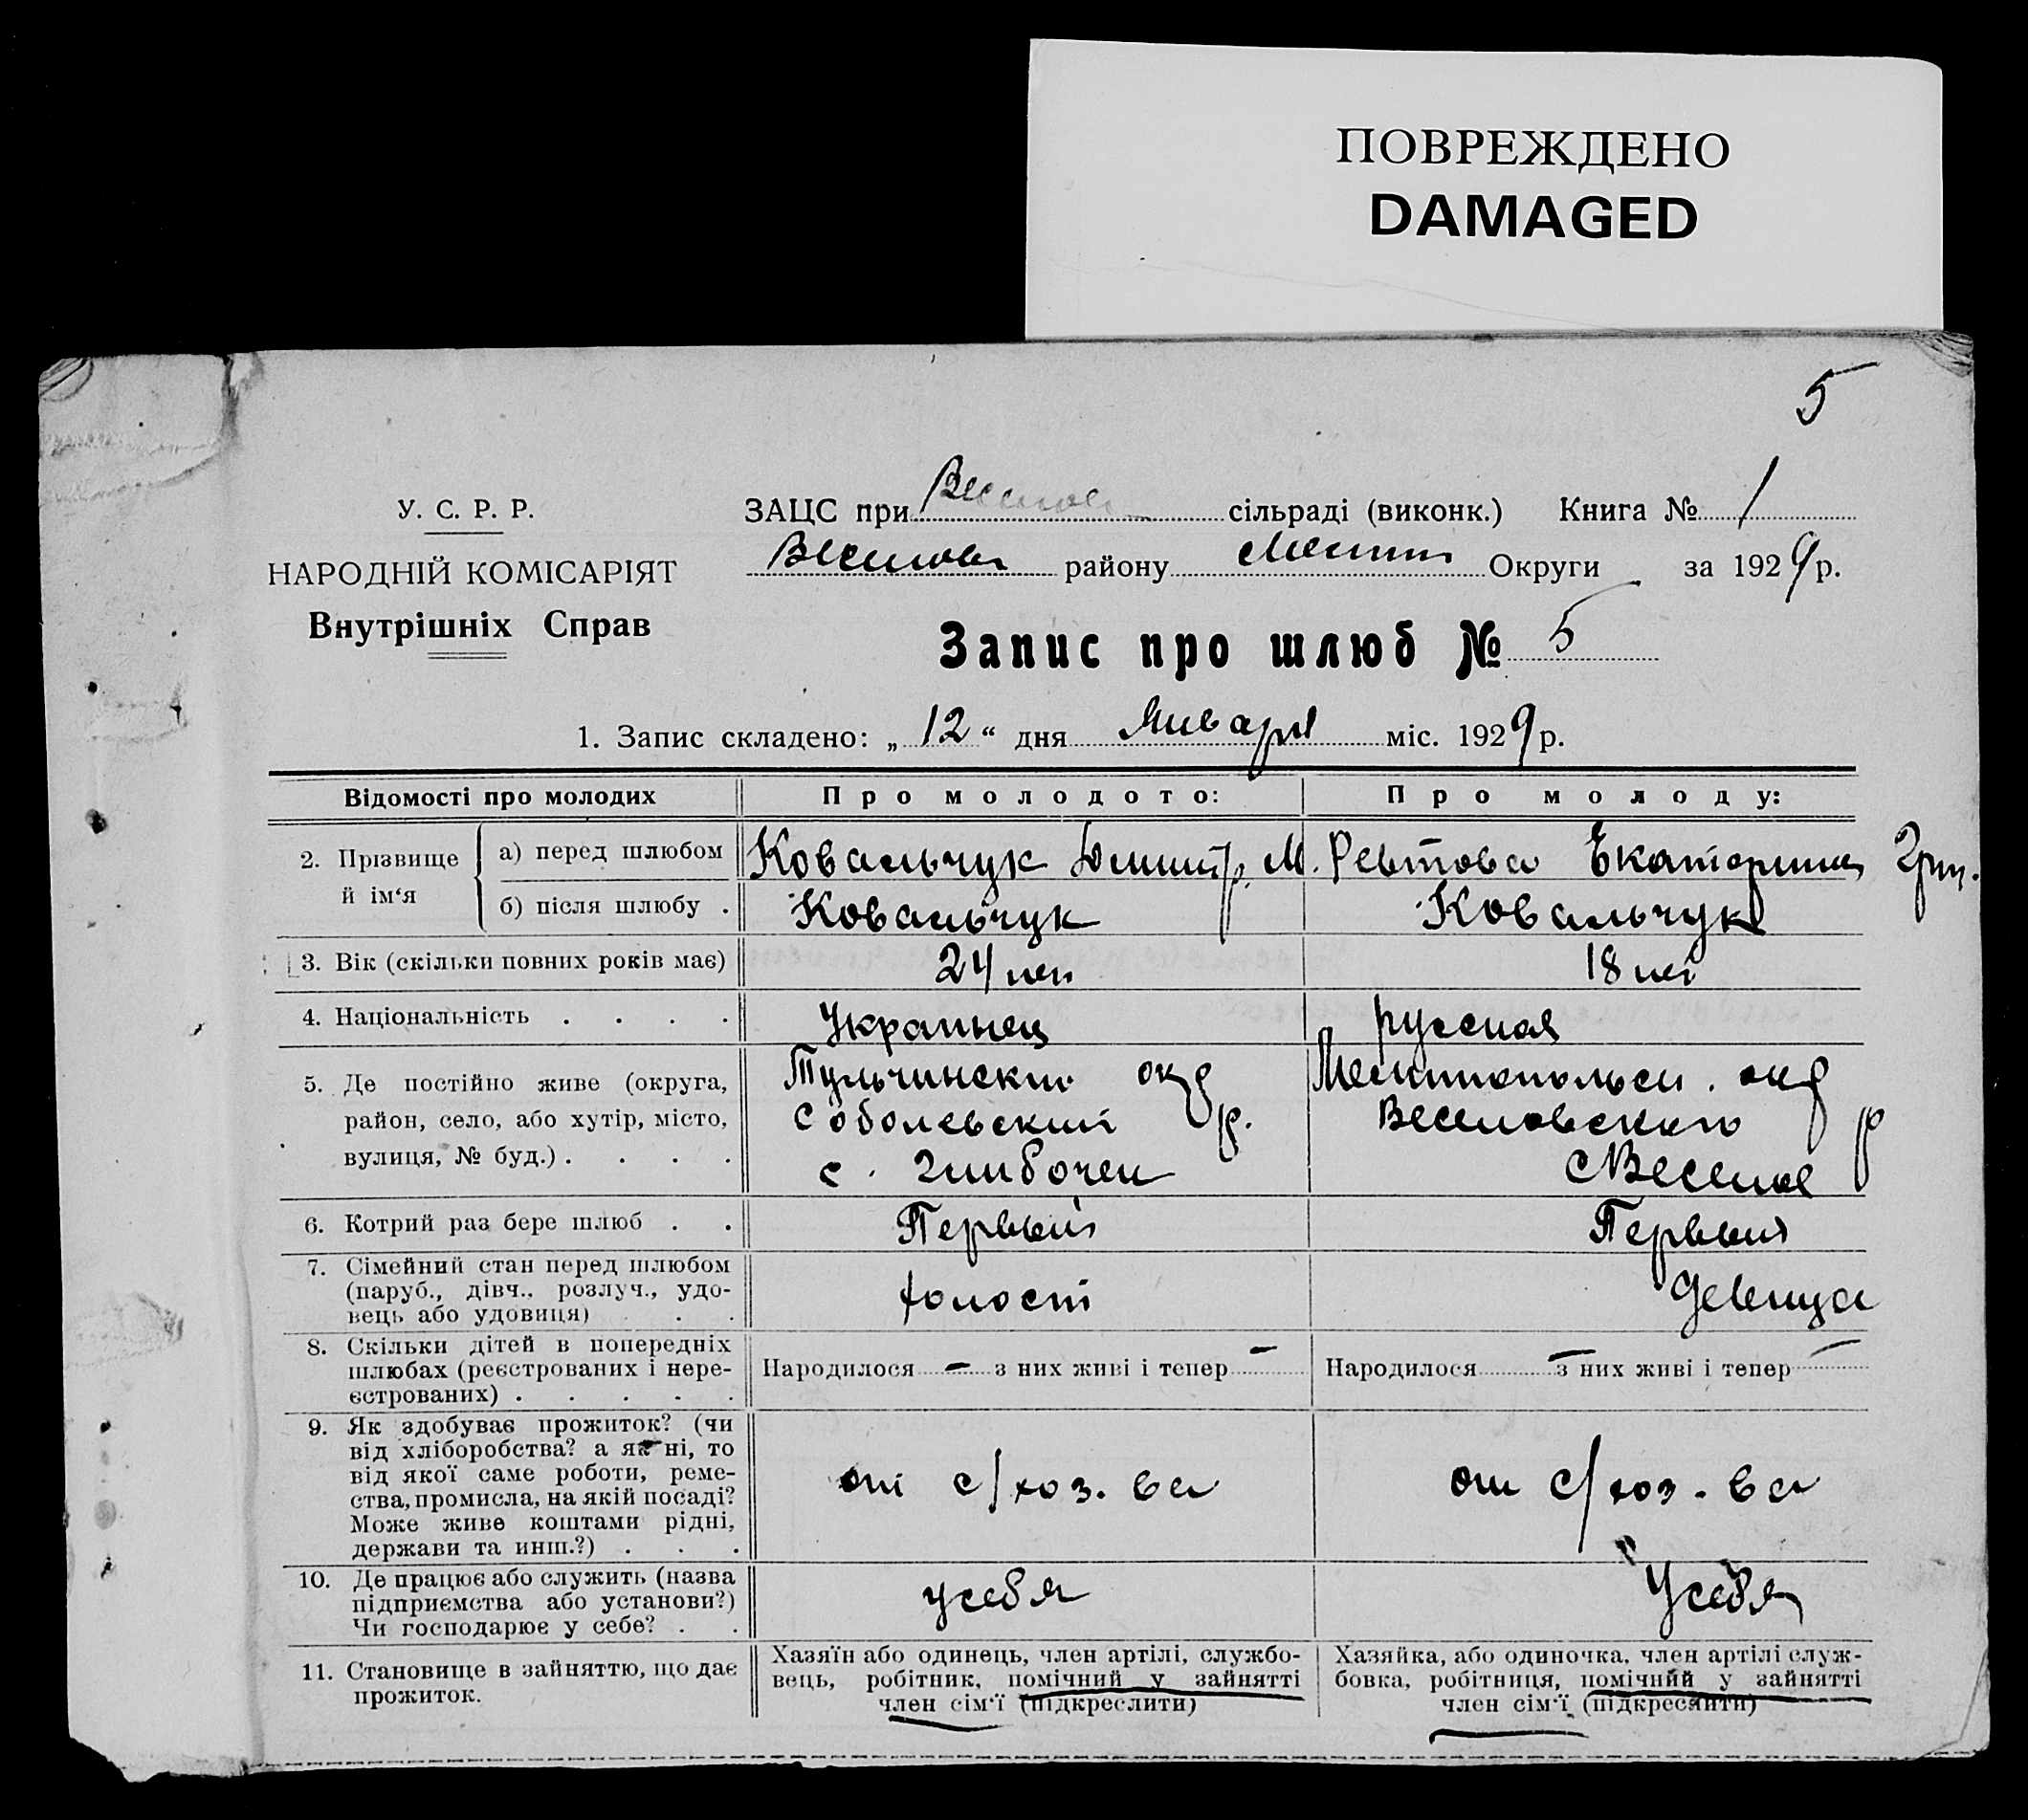 ПОВРЕЖДЕНО
DAMAGED
5
У. С. Р. Р.
НАРОДНІЙ КОМІСАРІЯТ
Внутрішніх Справ
ЗАЦС при Веселов сільраді (виконк.) Книга № 1
Веселовск району Мелит Округи за 1929 р.
Запис про шлюб № 5
1. Запис складено: „12“ дня Января міс. 1929 р.
Відомості про молодих
Про молодого:
Про молоду:
2. Прізвище й ім‘я
а) перед шлюбом
Ковальчук Дмитр. М.
Ревтова Екатерина Григ.
б) після шлюбу .
Ковальчук
Ковальчук
3. Вік (скільки повних років має)
24 лет
18 лет
4. Національність . . . .
Украинец
русская
5. Де постійно живе (округа,
район, село, або хутір, місто,
вулиця, № буд.) . . . .
Тульчинский окр
Соболевский р.
с. Глибочек
Мелитопольск. окр
Веселовского р
с Веселое
6. Котрий раз бере шлюб . .
Первый
Первый
7. Сімейний стан перед шлюбом
(паруб., дівч., розлуч., удо-
вець або удовиця) . . .
холост
девица
8. Скільки дітей в попередніх
шлюбах (реєстрованих і нере-
єстрованих) . . . . .
Народилося – з них живі і тепер –
Народилося – з них живі і тепер –
9. Як здобуває прожиток? (чи
від хліборобства? а як ні, то
від якої саме роботи, реме-
ства, промисла, на якій посаді?
Може живе коштами рідні,
держави та инш.?) . . .
от с/хоз. ва
от с/хоз. ва
10. Де працює або служить (назва
підприємства або установи?)
Чи господарює у себе? . .
у себя
У себя
11. Становище в зайняттю, що дає
прожиток.
Хазяїн або одинець, член артілі, службо-
вець, робітник, помічний у зайнятті
член сім‘ї (підкреслити)
Хазяйка, або одиночка, член артілі служ-
бовка, робітниця, помічний у зайнятті
член сім‘ї (підкреслити)